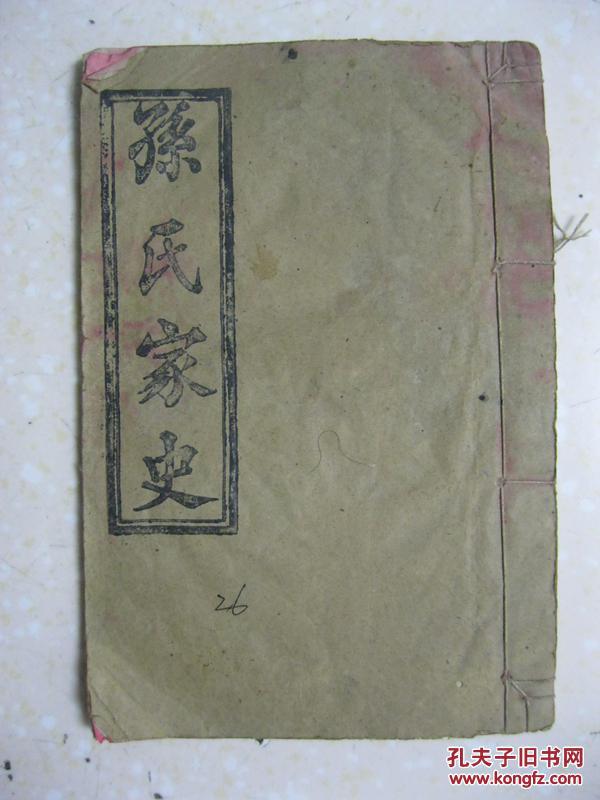 孫氏家史
26
孔夫子旧书网
www.kongfz.com